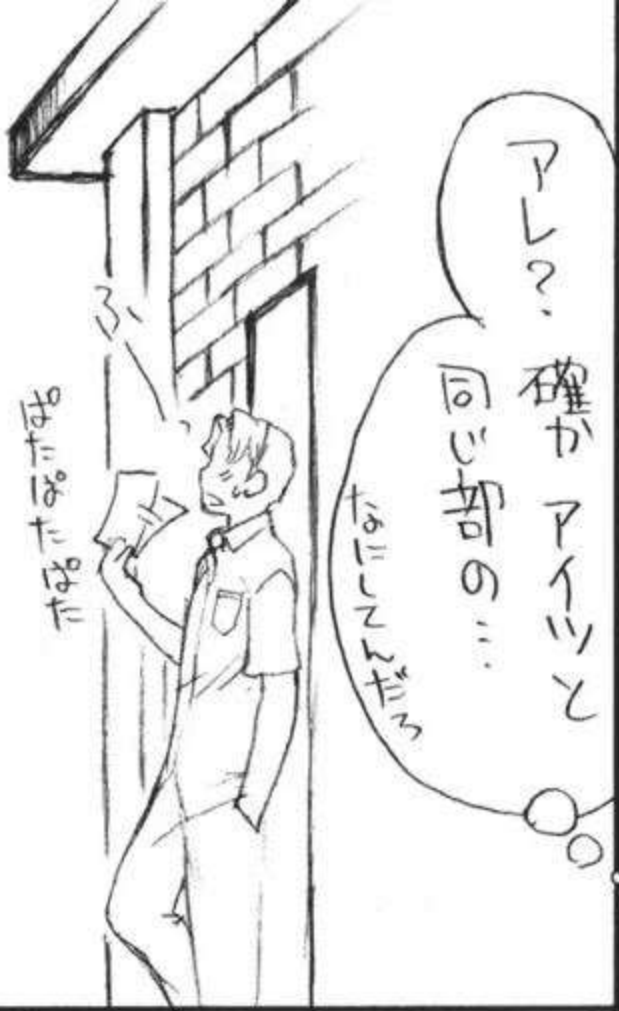 アレ?
確か アイツと
同じ部の…
なにしてんだろ
ふぅ
ぱたぱたぱた